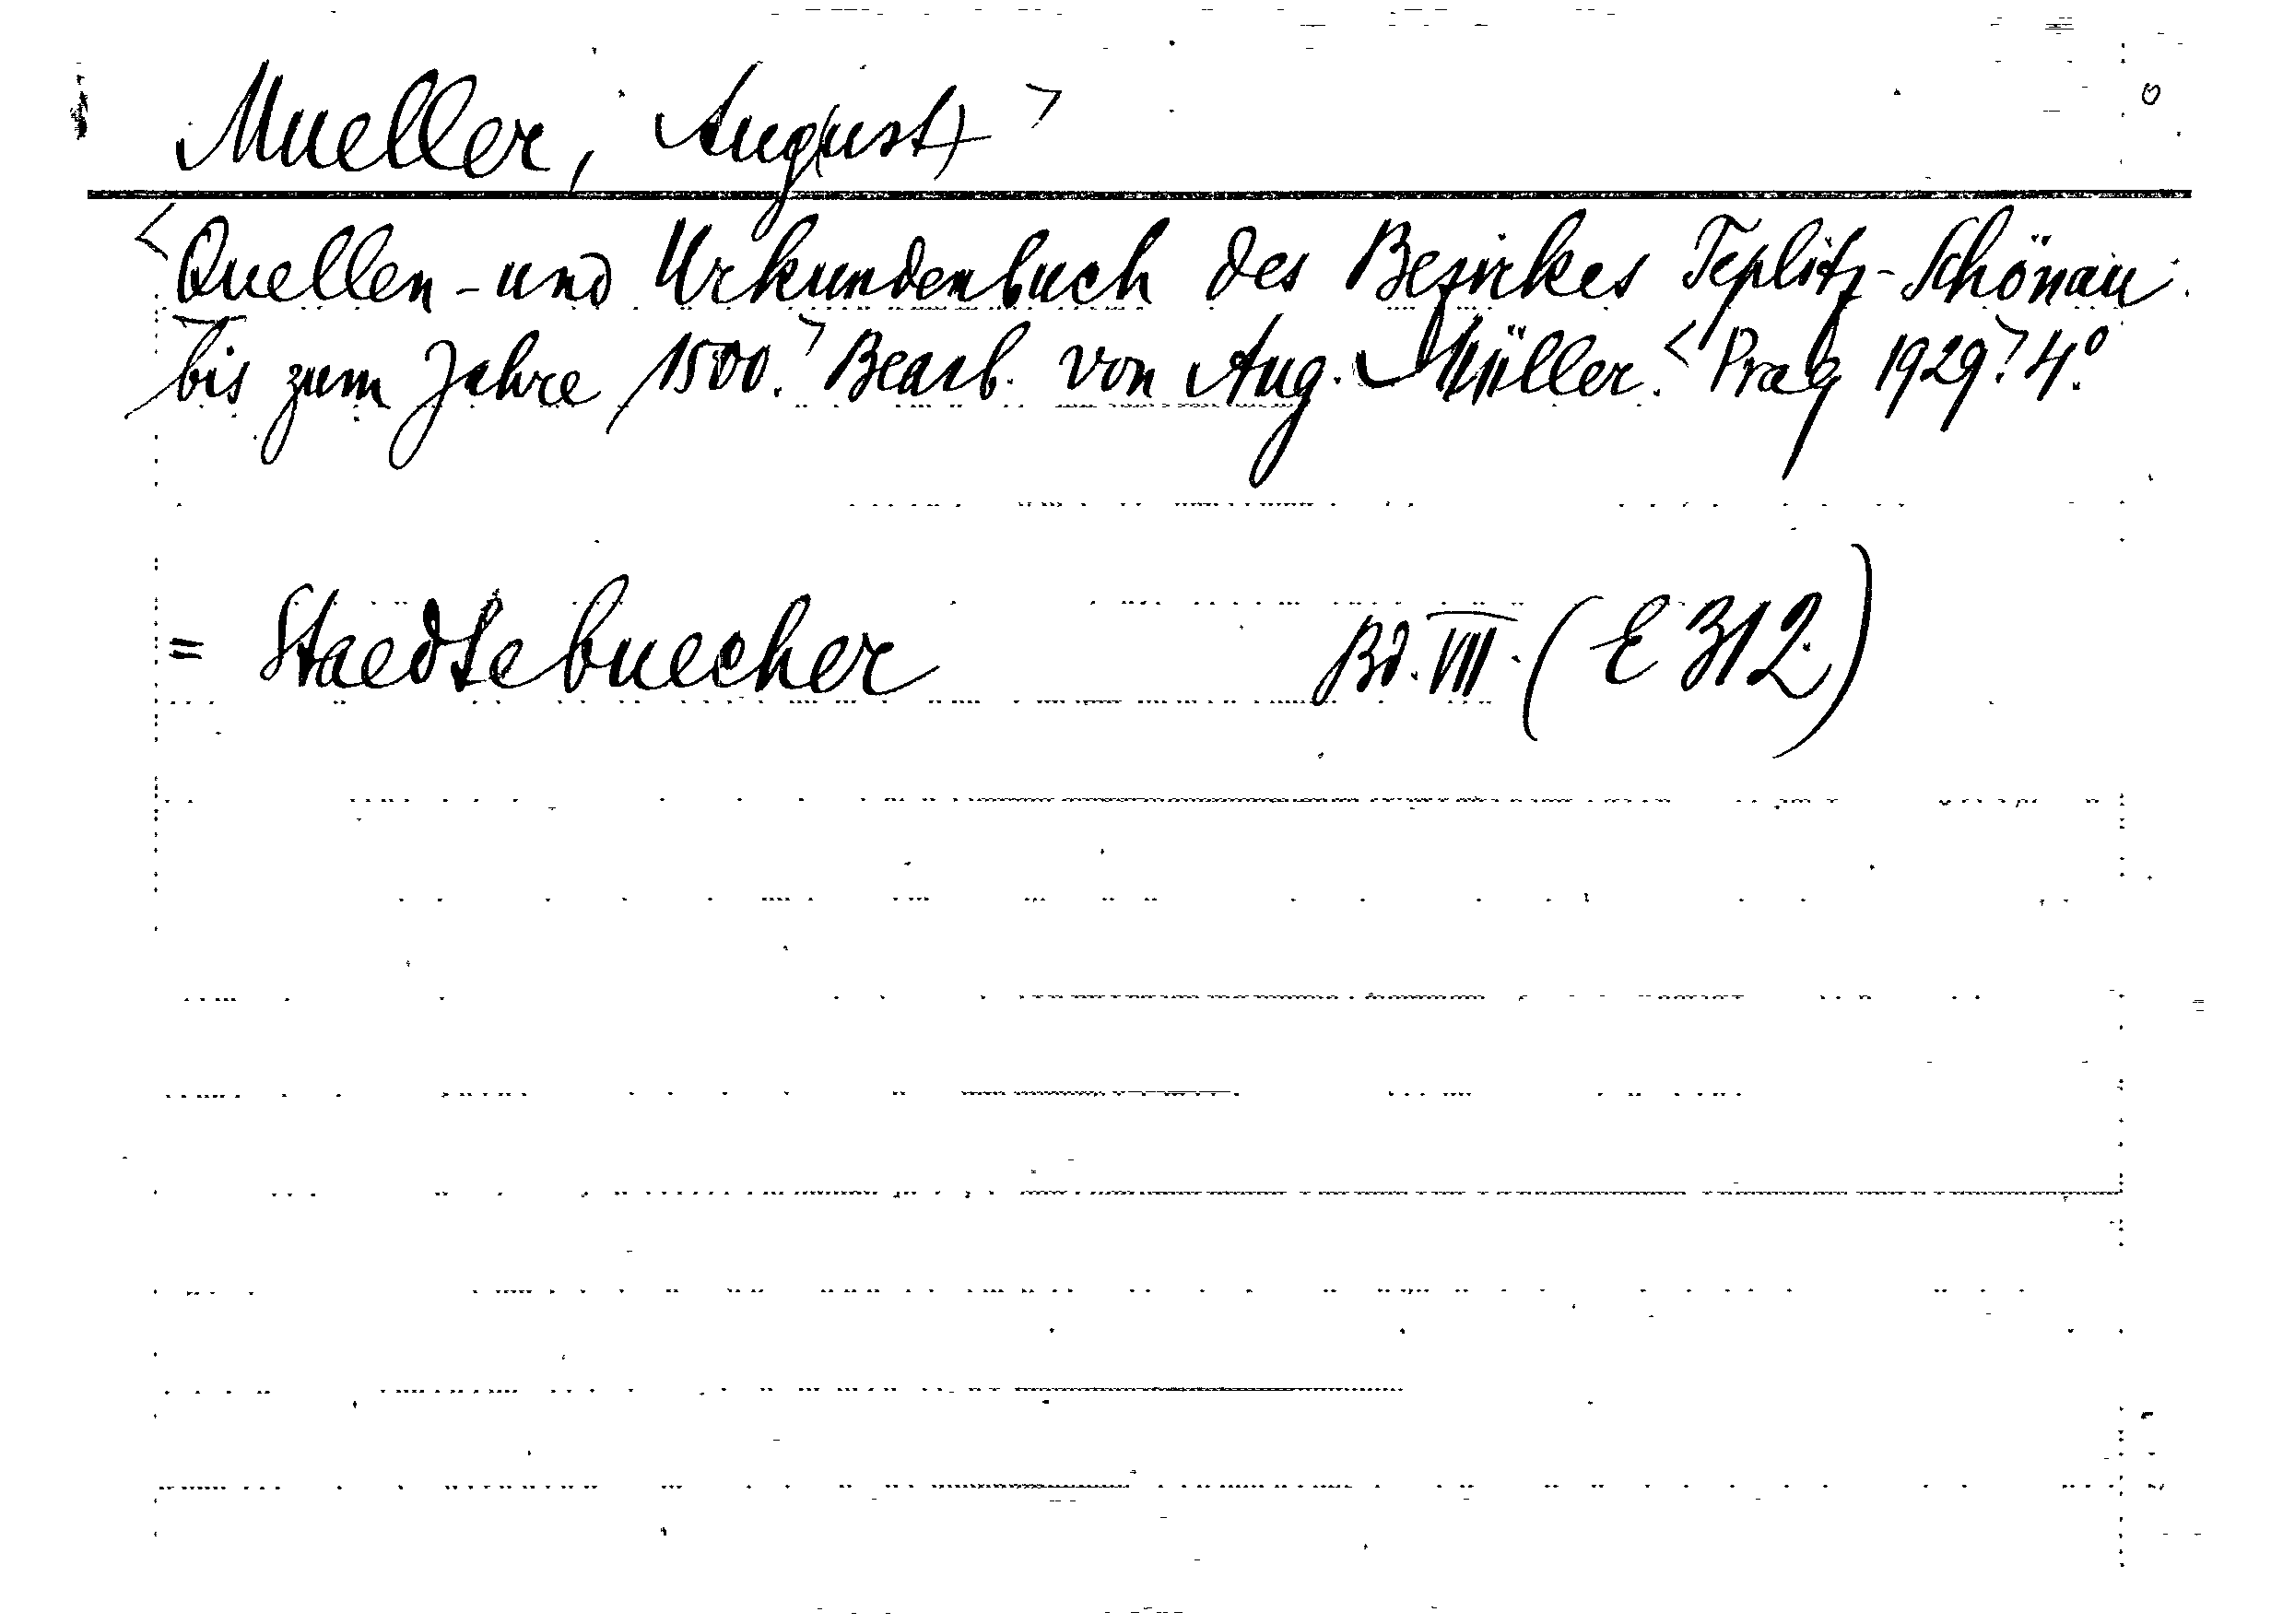 Mueller, Aug(ust) >
< Quellen- und Urkundenbuch des Bezirkes Teplitz-Schönau
bis zum Jahre 1500. > Bearb. von Aug. Müller. < Prag 1929. > 4°.
= Staedtebuecher Bd. VIII. (E 312)